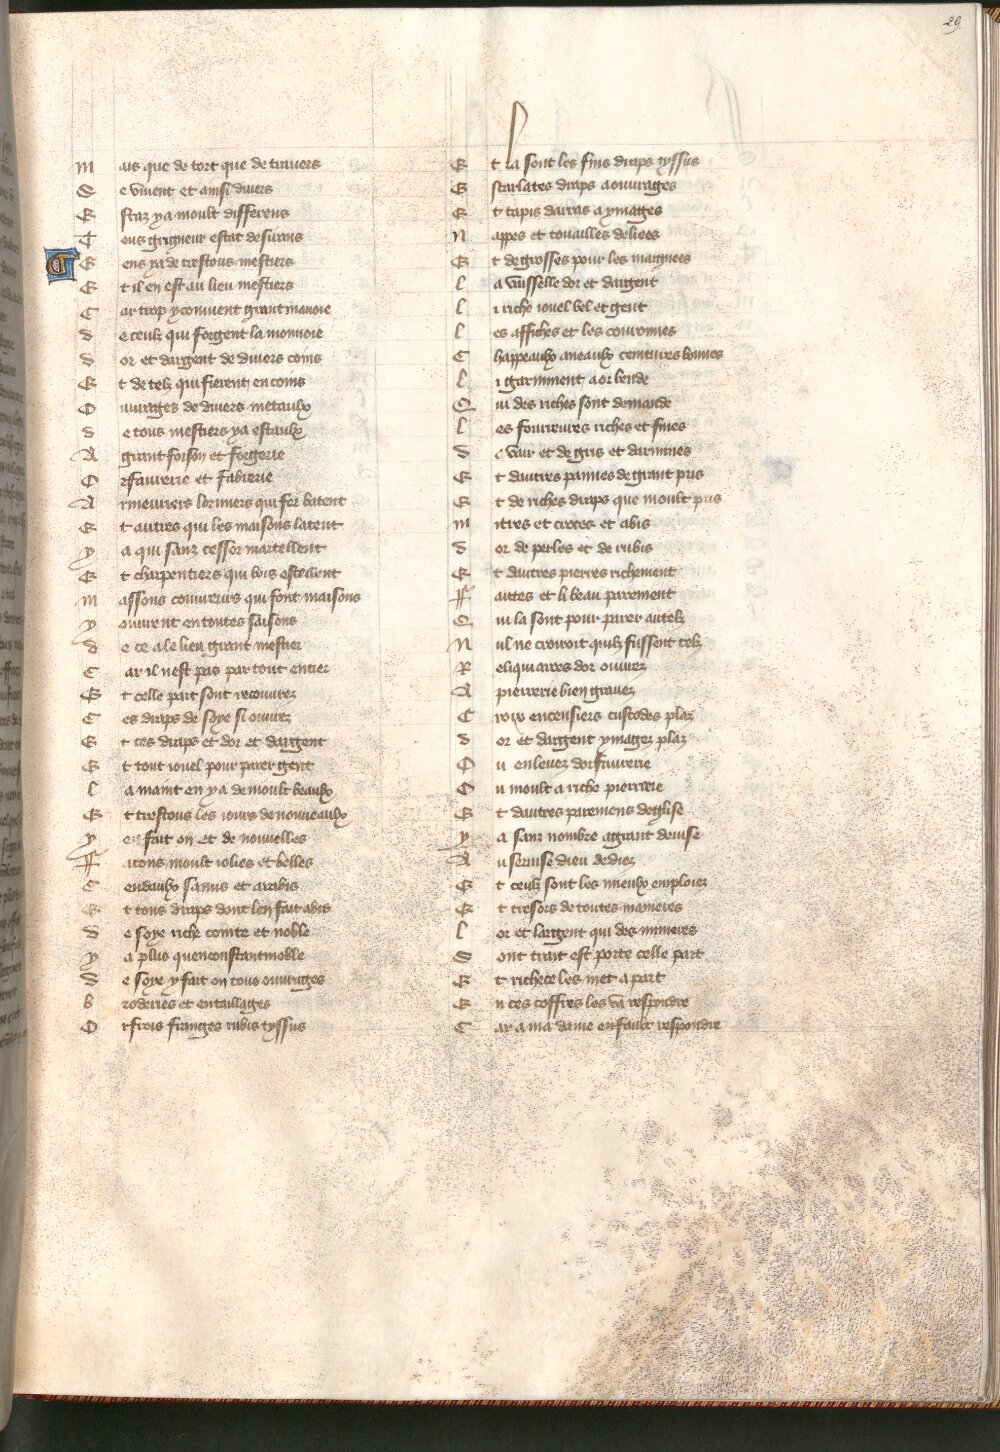 29
Mais que de tort que de travers
Se vivent et ainsi divers
Estaz y a moult differens
Tous grigneur estat desirans
G
Gens ya de trestous mestiers
Et il en est au lieu mestiers
Car trop y convient grant manoie
de ceulx qui forgent la monnoie
dor et dargent de divers coins
Et de telz qui fierent en coins
Ouvrages de divers metaulx
de tous mestiers ya estaulx
A grant foison et forgerie
Orfaverie et fabrerie
Armeuriers lormiers qui fer batent
Et autres qui les maisons latent
y a qui sanz cesser martellent
Et charpentiers qui bois estellent
Massons couvreurs qui font maisons
y ouvrent en toutes saisons
de ce a le lieu grant mestier
Car il nest pas par tout entier
Et celle part sont recouvrez
Ces draps de soye si ouvrez
Et ces draps et dor et dargent
Et tout jouel pour parer gent
la maint en y a de moult beaulx
Et trestous les jours de nouveaulx
y en fait on et de nouvelles
Facons moult jolies et belles
Cendaulx samis et arabis
Et tous draps dont len fait abis
de soye riche cointe et noble
y a plus quen constantinoble
de soye y fait on tous ouvrages
broderies et entaillages
Orfrois franges rubis tyssus
Et la sont les fins draps tyssus
Escarlates draps a ouvrages
Et tapis darras a ymages
Nappes et touailles deliees
Et de grosses pour les maignees
la vaisselle dor et dargent
li riche jouel bel et gent
les affiches et les couronnes
Chappeaulx aneaulx ceintures bonnes
li garnnment a or bende
Qui des riches sont demande
les fourreures riches et fines
de vair et de gris et darmines
Et dautres pannes de grant pris
Et de riches draps que moult pris
mitres et croces et abis
dor de perles et de rubis
Et dautres pierres richement
Faites et li beau parement
Qui la sont pour parer autelz
Nul ne croiroit quilz fussent telz
Reliquiaires dor ouvrez
A pierrerie bien gravez
Croix encensiers custodes plaz
dor et dargent ymagez plaz
Ou enlevez dorfaverie
Ou moult a riche pierrerie
Et dautres paremens deglise
y a sanz nombre a grant devise
Au servise dieu dediez
Et ceulx sont les mieulx emploiez
Et tresors de toutes manieres
lor et largent qui des minieres
Sont trait est porte celle part
Et richece les met a part
En ces coffres les va respondre
Car a ma dame en fault respondre